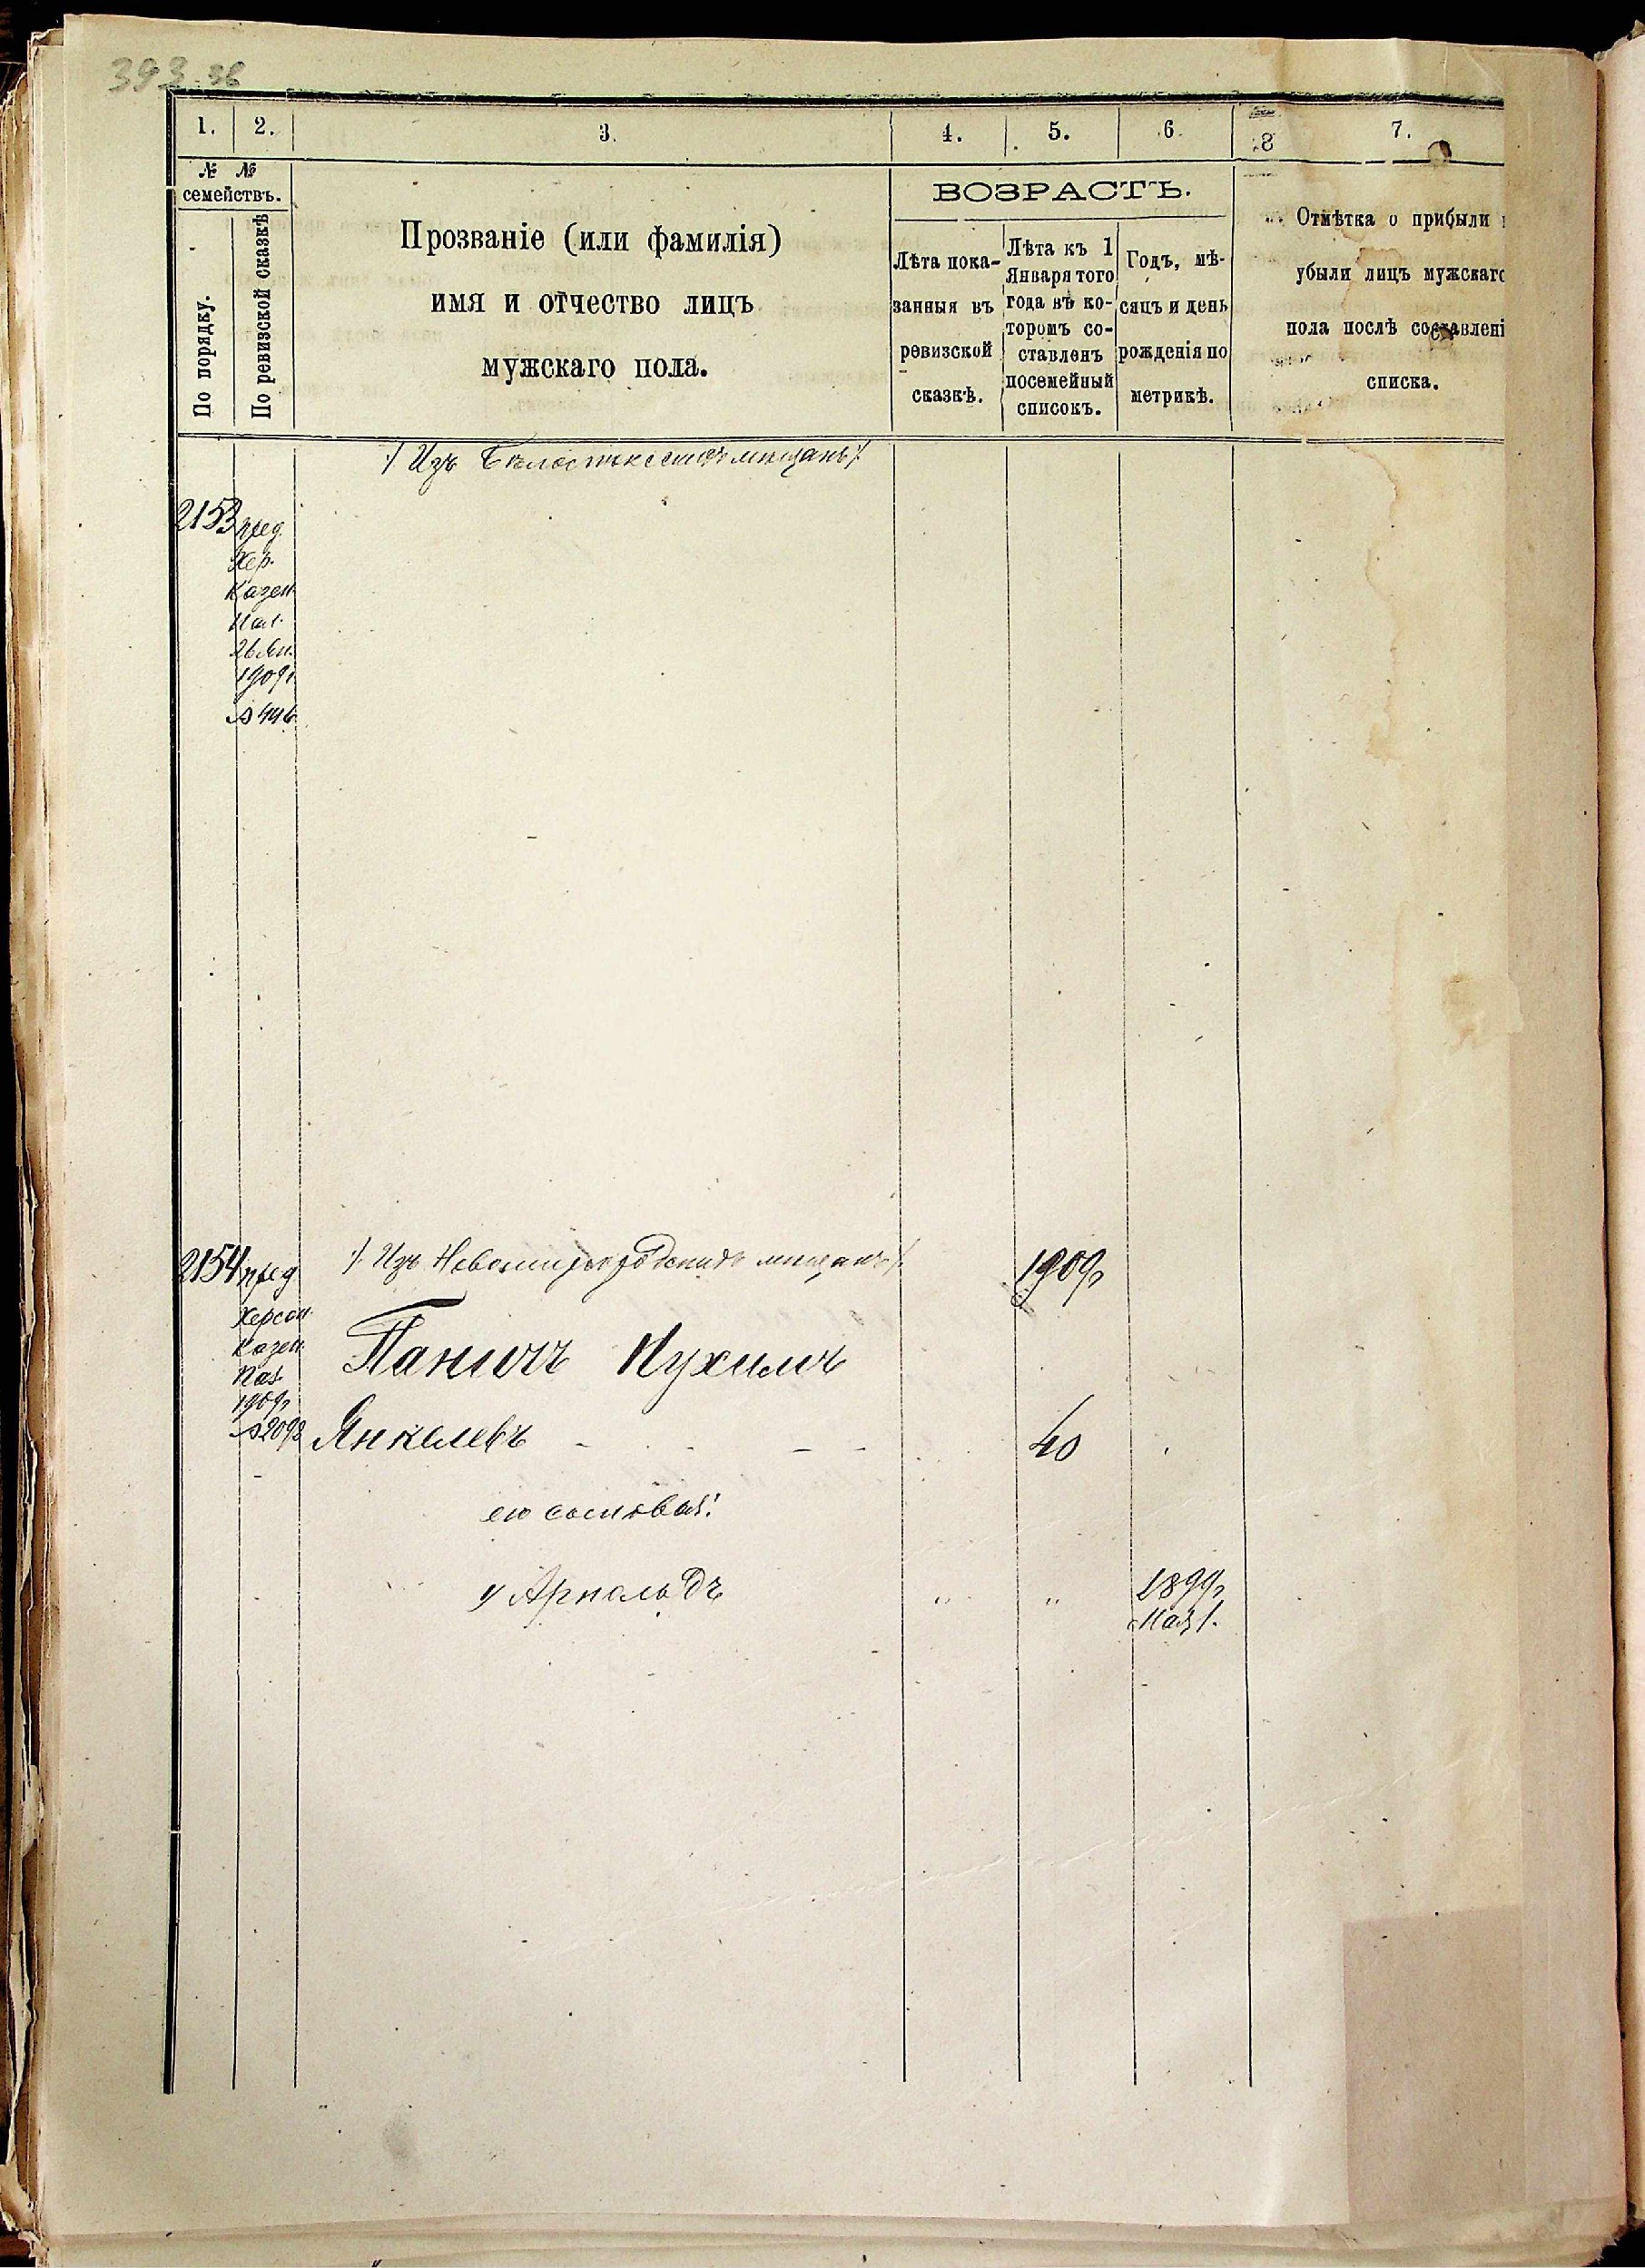 393 об
1. 2. 3. 4. 5. 6. 7.
8
№ №
семействъ.
По порядку.
По ревизской сказкѣ
Прозваніе (или фамилія)
имя и отчество лицъ
мужскаго пола.
ВОЗРАСТЪ.
Лѣта пока-
занныя въ
ревизской
сказкѣ.
Лѣта къ 1
Января того
года въ ко-
торомъ со-
ставленъ
посемейный
списокъ.
Годъ, мѣ-
сяцъ и день
рожденія по
метрикѣ.
Отмѣтка о прибыли
убыли лицъ мужскаго
пола послѣ составлені
списка.
/ Изъ мѣщанъ /.
2153 пред.
Хер.
Казен.
Пал.
26 Ян.
1909г.
№ 446
2154 пред
Херсон.
Казен.
Пал.
1909г.
№ 2092
/. Изъ Новомиргородскихъ мѣщанъ /.
1909г
Паничъ Мухимъ
Янкелевъ - - - 40
его сыновья:
1/ Арнольдъ " " 1899г
Мая 1.